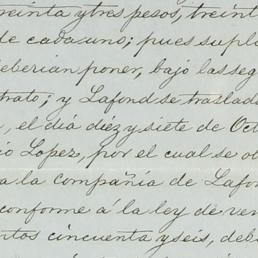 reinta y tres pesos, treint
de cada uno; pues suplo
deberian poner, bajo las seg
trato; y Lafond se traslad
, el dia diez y siete de Oct
io Lopez, por el cual se o
a la compañía de Lafon
conforme á la ley de ven
ntos cincuenta y seis, deb